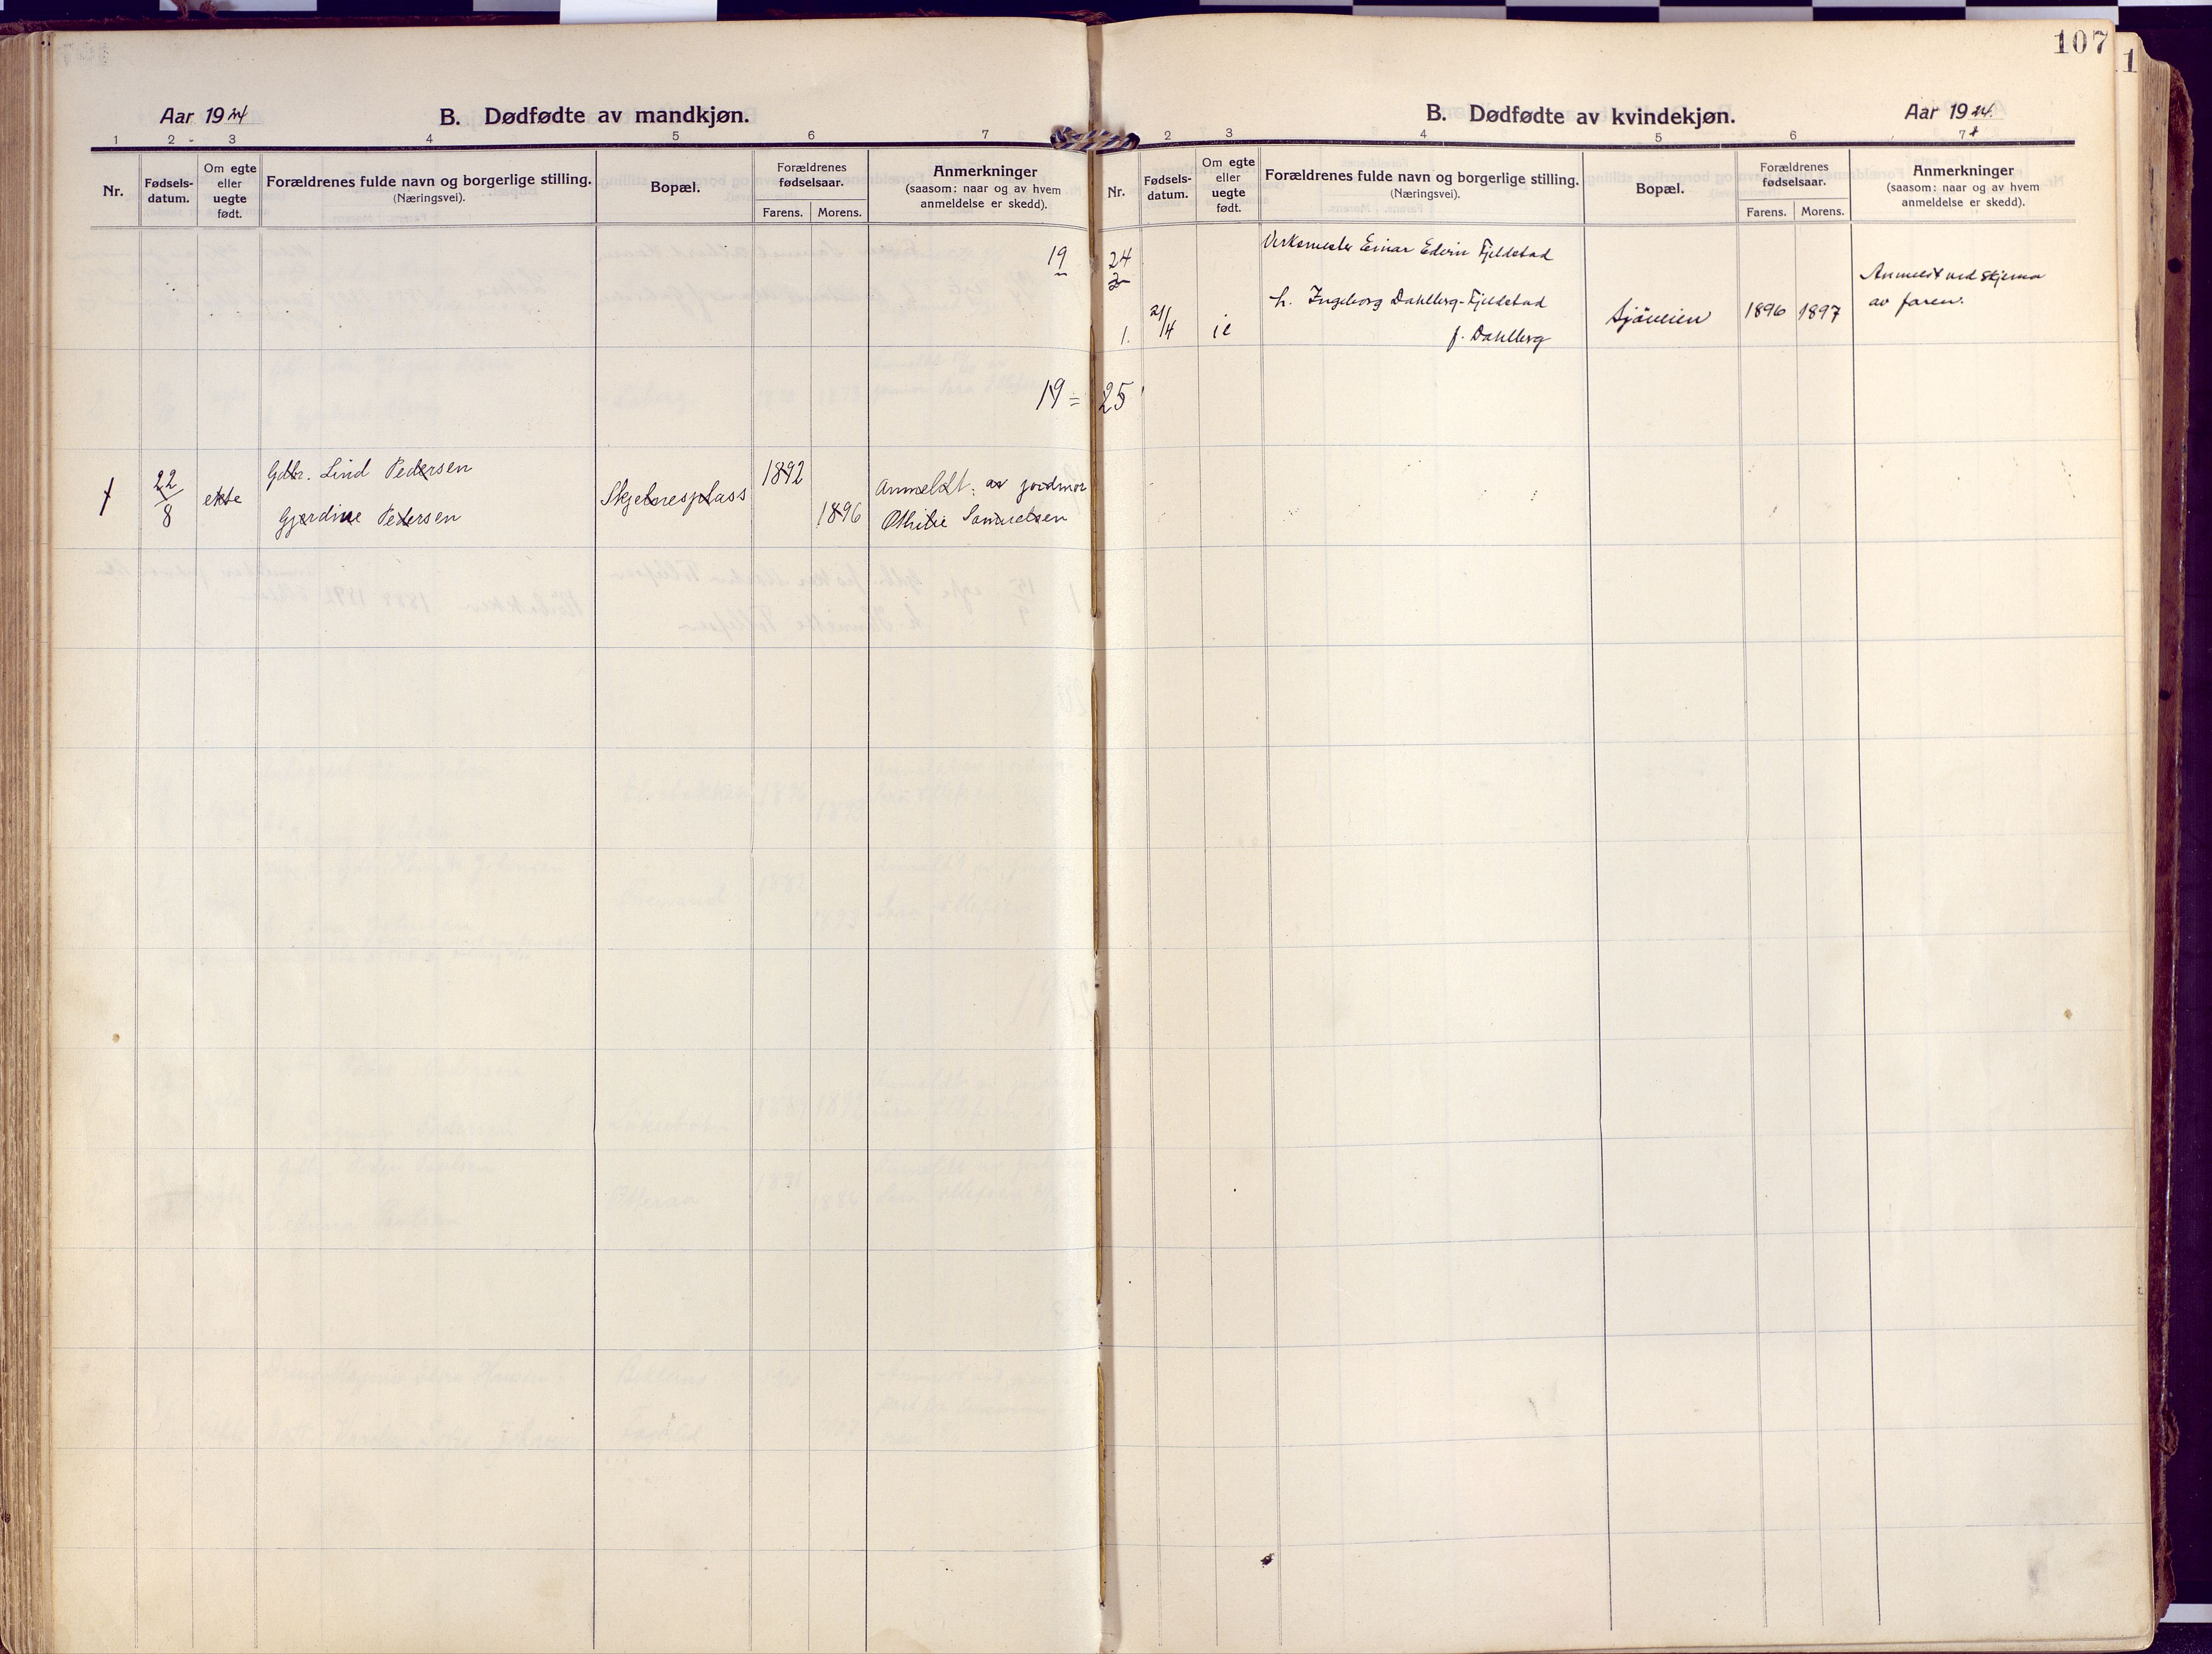 107
1
Aar 1924
B. Dødfødte av mandkjøn.
1 2 3 4 5 6 7
Nr.
Fødsels-
datum.
Om egte
eller
uegte
født.
Forældrenes fulde navn og borgerlige stilling.
(Næringsvei).
Bopæl.
Forældrenes
fødselsaar.
Farens. Morens.
Anmerkninger
(saasom: naar og av hvem
anmeldelse er skedd).
19 24
19 = 25
1 22/8 ekte
Gdbr. Lind Pedersen
Gjerdine Pedersen
Skjelnesplass
1892
1896
Anmeldt: av jordmor
Othilie Samuelsen
B. Dødfødte av kvindekjøn.
Aar 1924.
2 3 4 5 6 7
Nr.
Fødsels-
datum.
Om egte
eller
uegte
født.
Forældrenes fulde navn og borgerlige stilling.
(Næringsvei).
Bopæl.
Forældrenes
fødselsaar.
Farens. Morens.
Anmerkninger
(saasom: naar og av hvem
anmeldelse er skedd).
1. 21/4
Verksmester Einar Edvin Fjeldstad
h. Ingeborg Dahlberg-Fjeldstad
f. Dahlberg
Sjöveien
1896 1897
Anmeldt ved skjema
av faren.